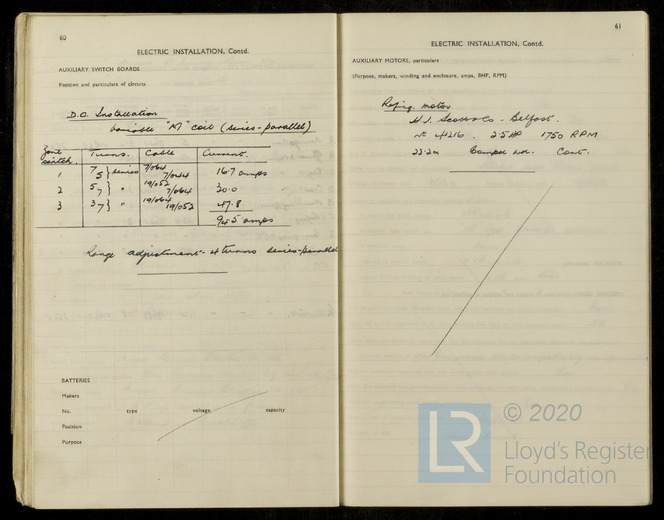 60
ELECTRIC INSTALLATION, Contd.
AUXILIARY SWITCH BOARDS
Position and particulars of circuits
D.G. Installation
Variable "M" coil (series-parallel)
Zone switch. Turns. Cable Current.
1 7 5 } series 7/064 7/044 16.7 amps
2 5 7 } " 19/052 7/064 30.0
3 3 7 } " 19/064 19/052 47.8
94.5 amps
Range adjustment - 4 turns series-parallel
BATTERIES
Makers
No. type voltage capacity
Position
Purpose
61
ELECTRIC INSTALLATION, Contd.
AUXILIARY MOTORS, particulars
(Purpose, makers, winding and enclosure, amps, BHP, RPM)
Refrig. motor
H.J. Scott & Co - Belfast.
No 4216 . 2.5 HP 1750 RPM
22.2a Comp'd Cont.
© 2020
LR
Lloyd's Register
Foundation